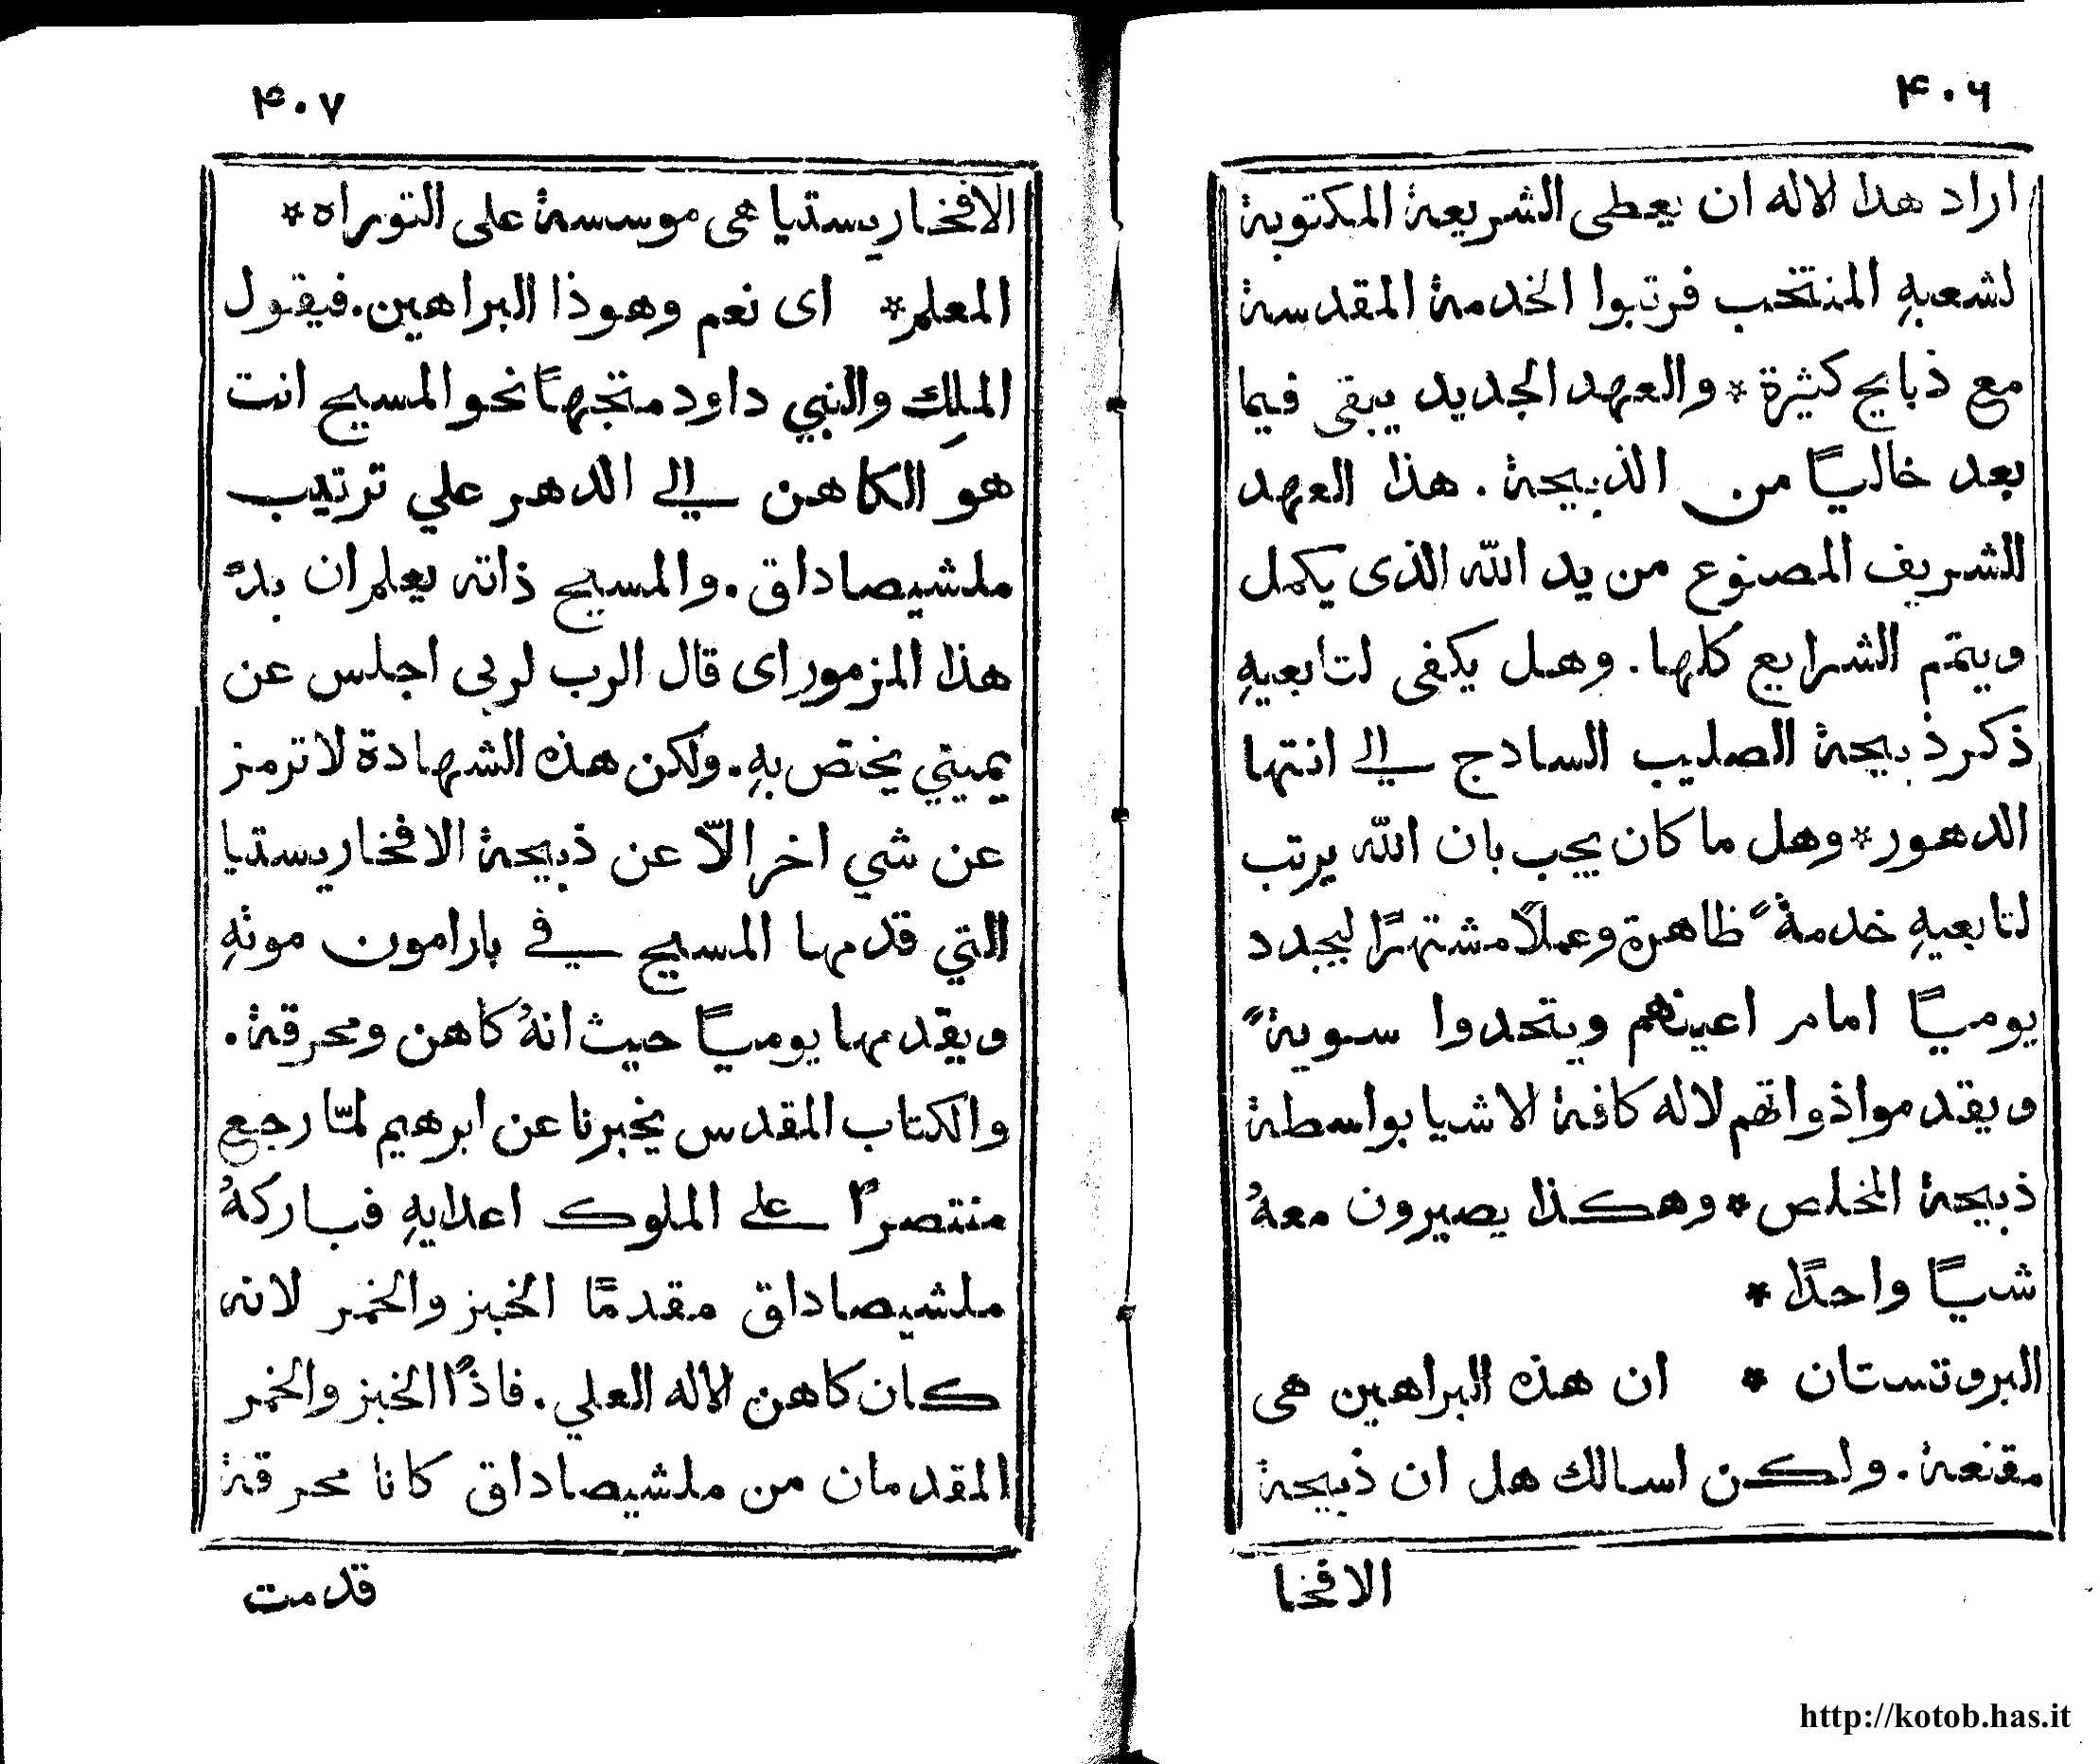 ۴۰۶
اراد هذا الاله ان يعطى الشريعة المكتوبة
لشعبهِ المنتخب فرتبوا الخدمة المقدسة
مع ذبايح كثيرة * والعهد الجديد يبقى فيما
بعد خاليًا من الذبيحة . هذا العهد
الشريف المصنوع من يد الله الذى يكمل
ويتمم الشرايع كلها . وهل يكفى لتابعيهِ
ذكر ذبيحة الصليب السادج الي انتها
الدهور * وهل ما كان يجب بان الله يرتب
لتابعيهِ خدمةً ظاهرة وعملاً مشتهرًا ليجدد
يوميًا امام اعينهم ويتحدوا سويةً
ويقدموا ذواتهم لاله كافة الاشيا بواسطة
ذبيحة المخلص * وهكذا يصيرون معهُ
شيًا واحدًا *
البروتستان * ان هذه البراهين هى
مقنعة . ولكن اسالك هل ان ذبيحة
الافخا
۴۰۷
الافخاريستيا هى موسسة على التوراه *
المعلم * اى نعم وهوذا البراهين . فيقول
الملِك والنبي داود متجهًا نحو المسيح انت
هو الكاهن الي الدهر علي ترتيب
ملشيصاداق . والمسيح ذاته يعلم ان بدً
هذا المزمور اى قال الرب لربى اجلس عن
يميني يختص بهِ . ولكن هذه الشهادة لا ترمز
عن شي اخر الاّ عن ذبيحة الافخاريستيا
التي قدمها المسيح في بارامون موتهِ
ويقدمها يوميًا حيث انهُ كاهن ومحرقة .
والكتاب المقدس يخبرنا عن ابرهيم لمّا رجع
منتصرًا علي الملوك اعدايهِ فباركهُ
ملشيصاداق مقدمًا الخبز والخمر لانه
كان كاهن الاله العلي . فاذًا الخبز والخمر
المقدمان من ملشيصاداق كانا محرقة
قدمت
http://kotob.has.it